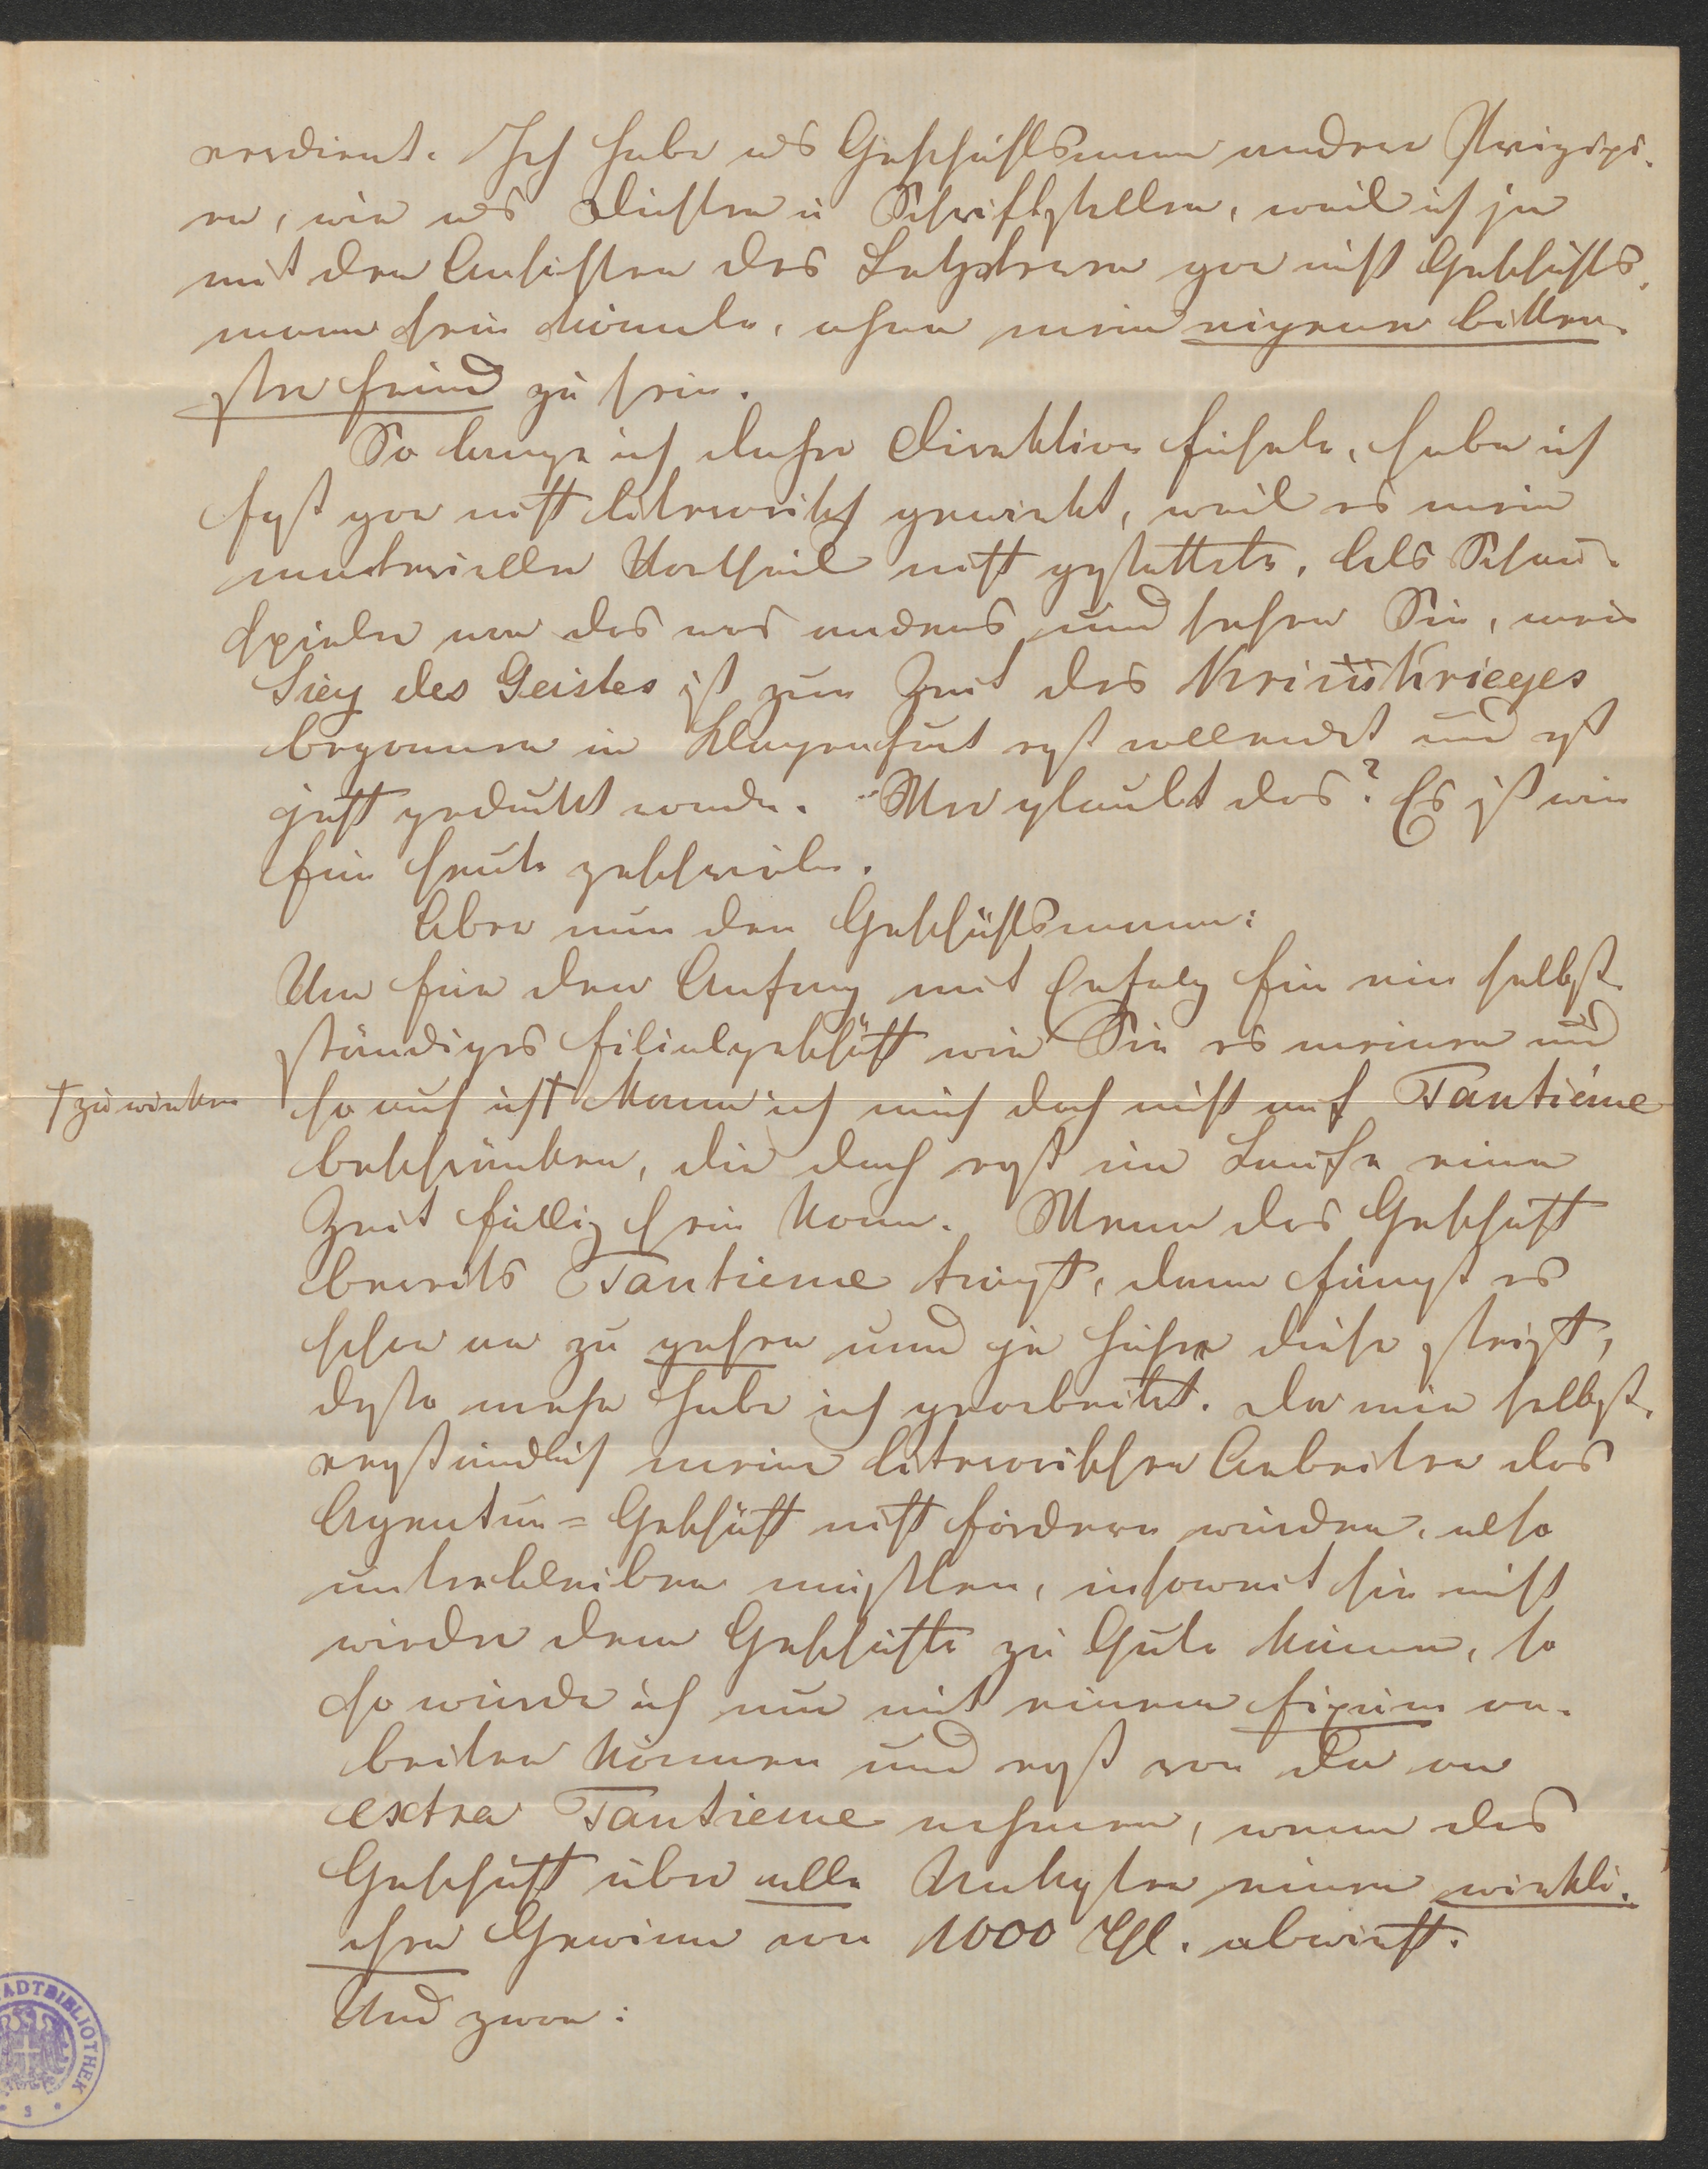 verdient. Ich habe als Geschäftsmann andere Prinzipi-
en, wie als Dichter u Schriftsteller, weil ich ja
mit den Ansichten des Letzteren gar nicht Geschäfts-
mann sein könnte, ohne mein eigener bitter-
ster Feind zu sein.
So lange ich daher Direktion führte, habe ich
fast gar nicht literarisch gewirkt, weil es mein
materieller Vortheil nicht gestattete. Als Schau-
spieler war das was anders und sehen Sie, mein
Sieg des Geistes ist zur Zeit des Krim Krieges
begonnen in Klagenfurt erst vollendet und ist
jetzt gedruckt worden. Wer glaubt das? Es ist wie
für heute geschrieben.
Aber nun den Geschäftsmann:
Um für den Anfang mit Erfolg für ein selbst-
ständiges Filialgeschäft wie Sie es meinen und
so auch ich† kann ich mich doch nicht auf Tantième
†zu wirken
beschränken, die doch erst im Laufe einer
Zeit fällig sein kann. Wenn das Geschäft
bereits Tantieme trägt, dann fängt es
schon an zu gehen und je höher diese steigt,
desto mehr habe ich gearbeitet. Da mir selbst-
verständlich meine literarischen Arbeiten das
Agentur=Geschäft nicht fördern würden, also
unterbleiben müßten, insoweit sie nicht
wieder dem Geschäfte zu Gute kämen, so
so würde ich nur mit einem Fixum ar-
beiten können und erst von da an
extra Tantieme nehmen, wenn das
Geschäft über alle Unkosten einen wirkli-
chen Gewinn von 1000 abwirft.
Und zwar:
STADTBIBLIOTHEK